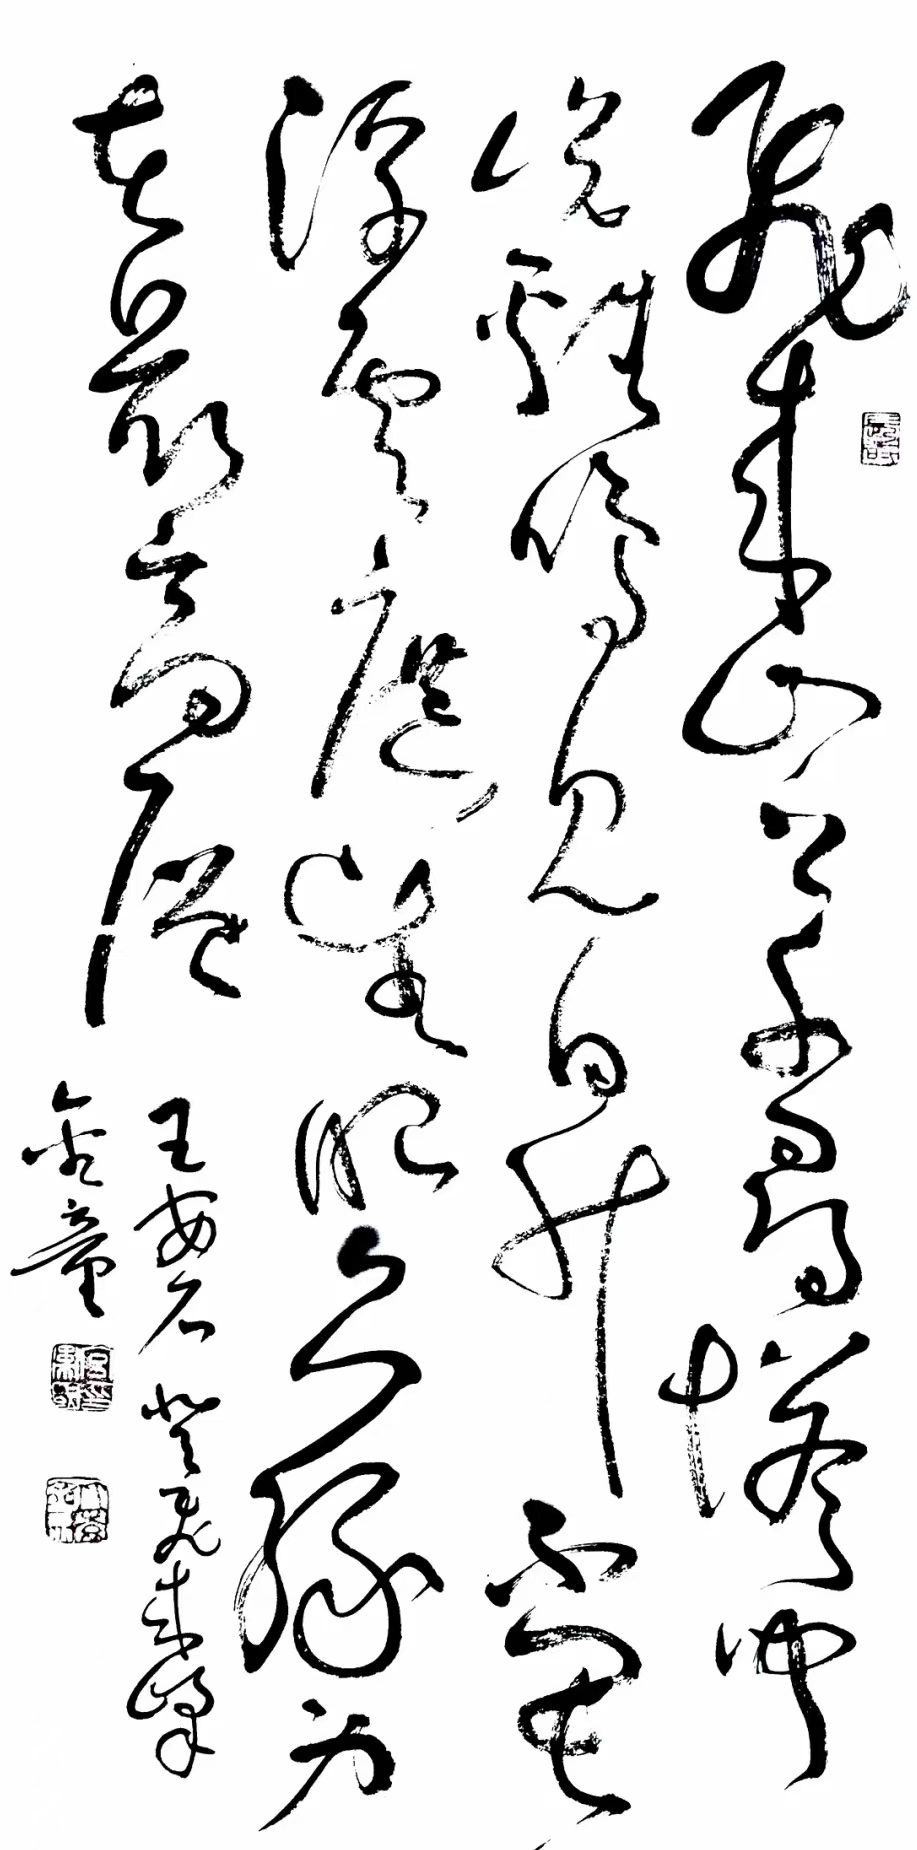 飛来山上千尋塔聞
說雞鳴見日昇不畏
浮雲遮望眼只緣身
在最高層
王安石登飛来峰
金童